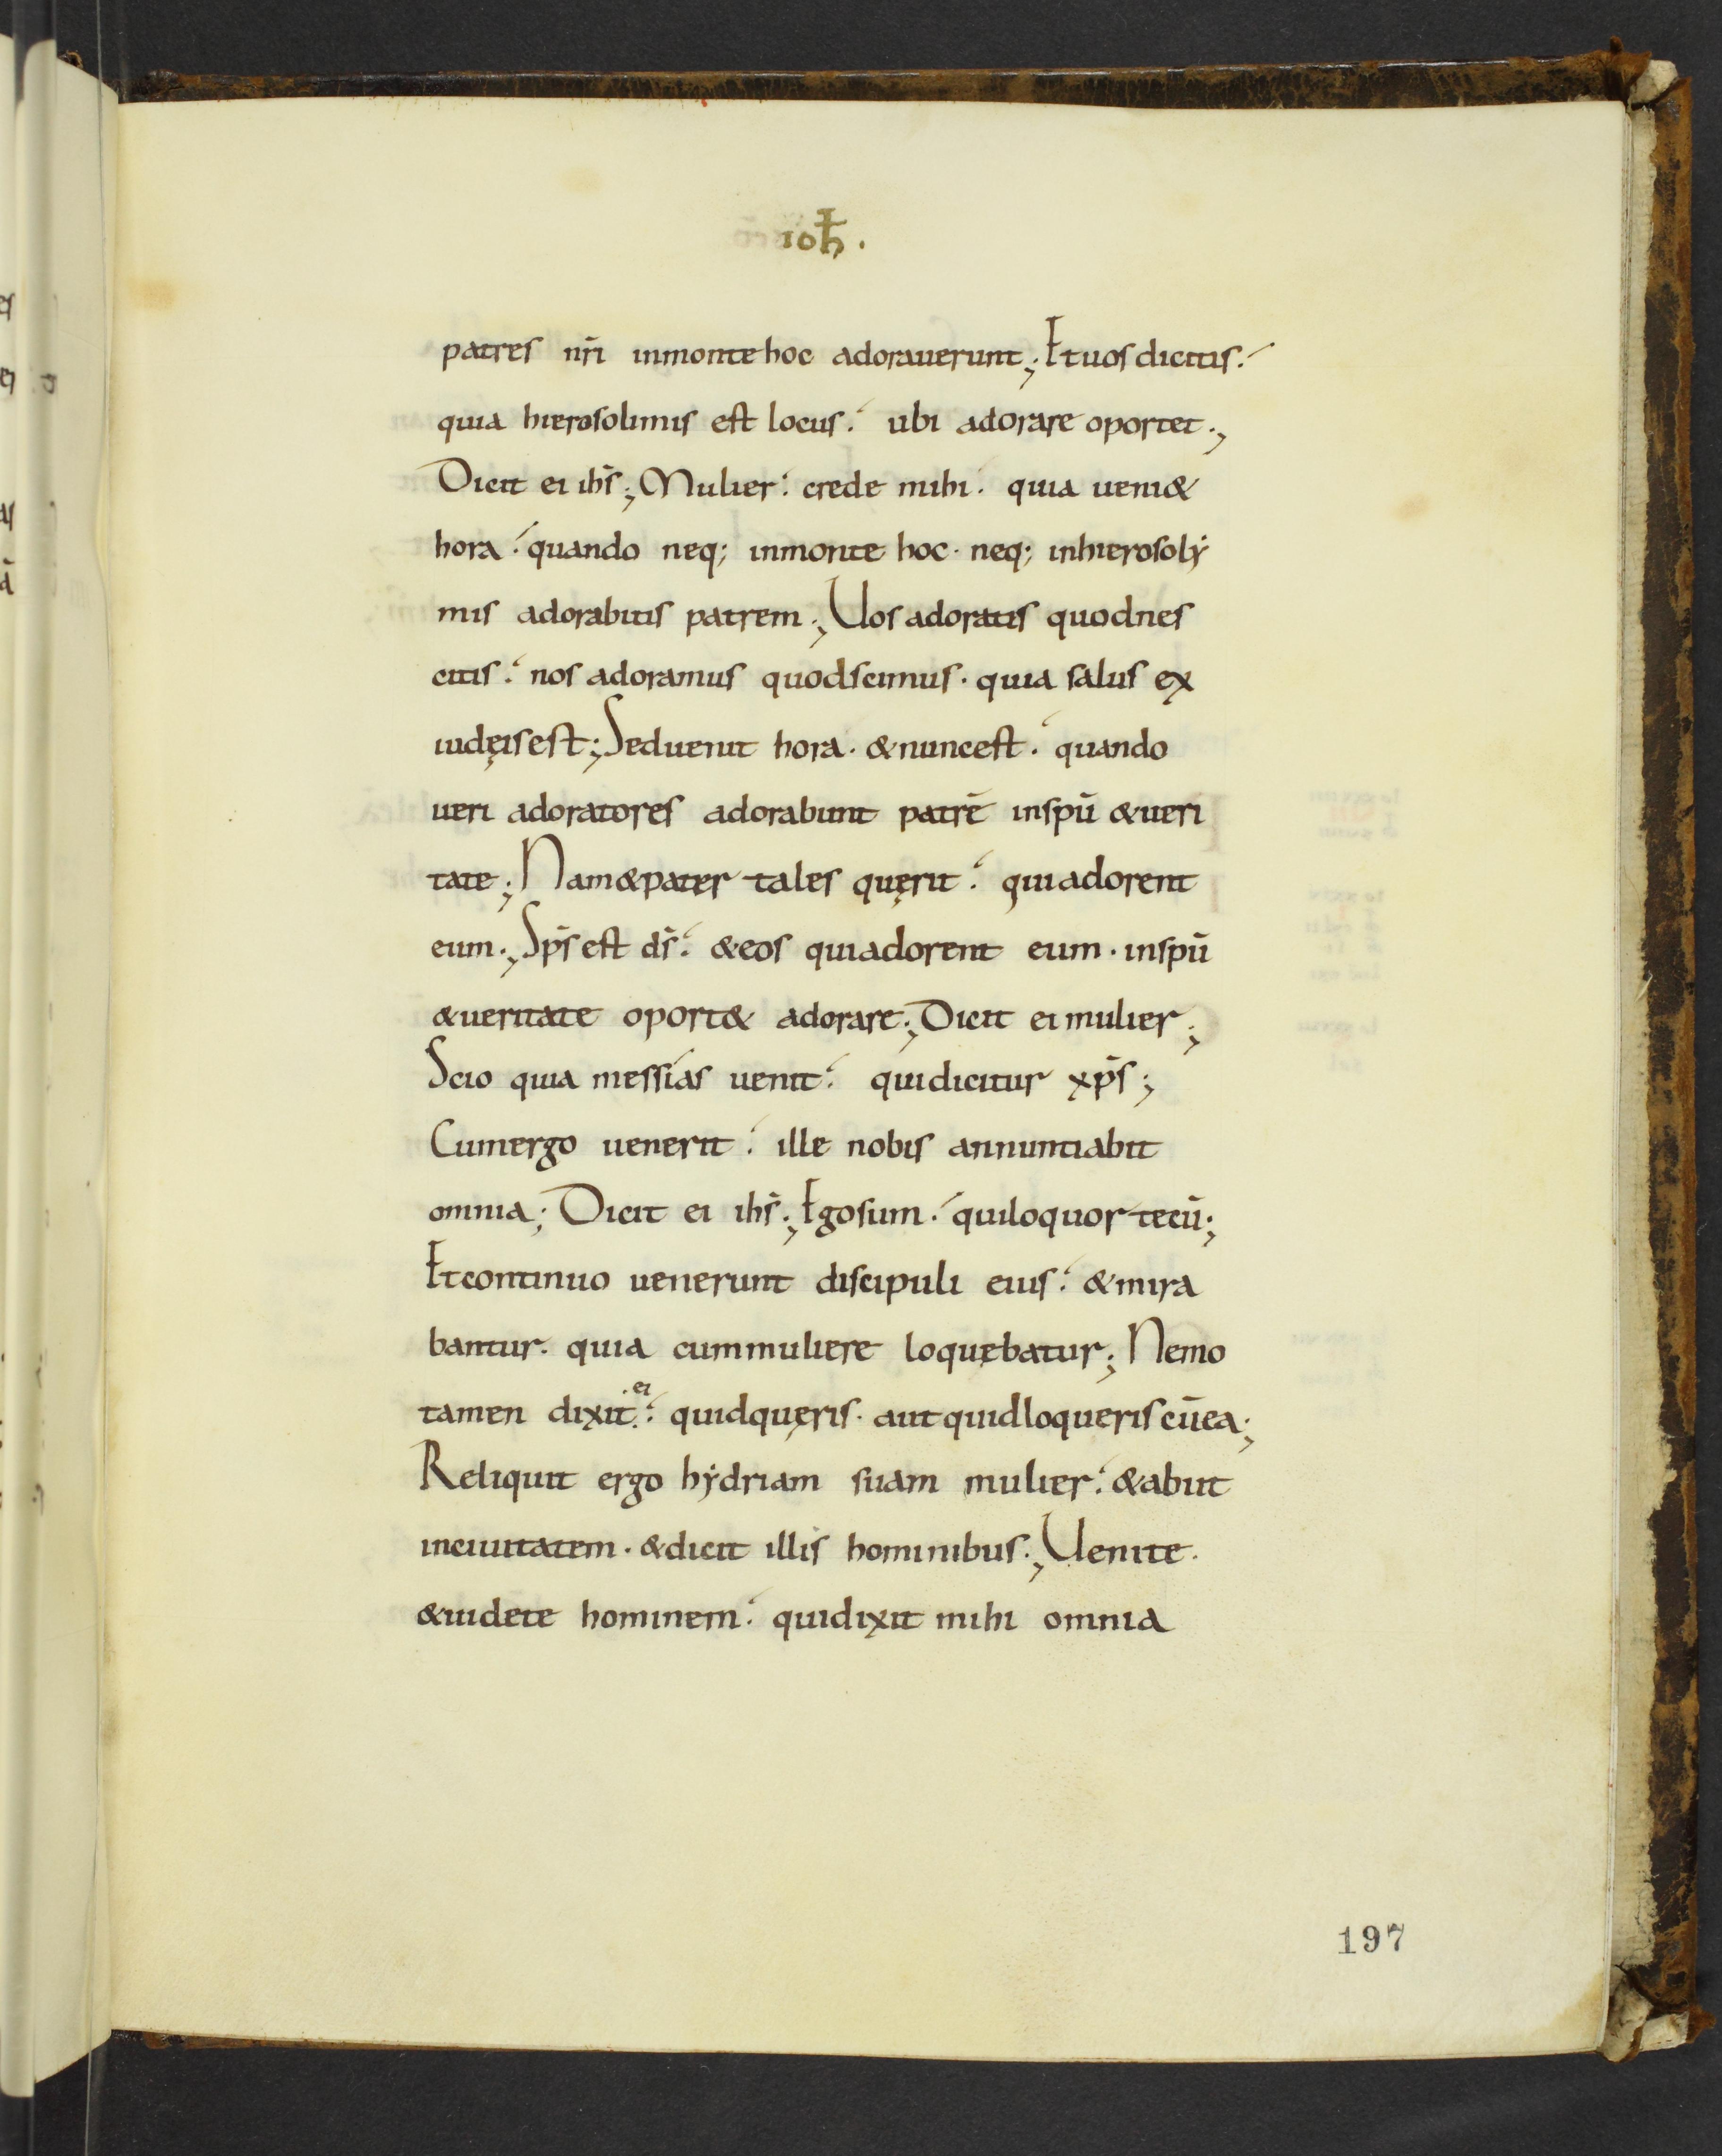 ioħ.
patres nr̄i inmontehoc adorauerunt; Etuosdicitis:
quia hierosolimis est locus: ubi adorare oportet;
Dicit ei ih̄s; Mulier: crede mihi: quia ueni&
hora: quando neq; inmonte hoc· neq; inhierosolẏ
mis adorabitis patrem; Uos adoratis quodnes
citis: nos adoramus quodscimus· quia salus ex
iudęisest; Seduenit hora· &nuncest: quando
ueri adoratores adorabunt patrē insp̄u &ueri
tate; Nam&pater tales quęrit: quiadorent
eum; Sp̄s est d̄s: &eos quiadorent eum· insp̄u
&ueritate oport& adorare; Dicit ei mulier;
Scio quia messías uenit: quidicitur xp̄s;
Cumergo uenerit: ille nobis annuntiabit
omnia; Dicit ei ih̄s; Egosum: quiloquor tecū;
Etcontinuo uenerunt discipuli eius: &mira
bantur· quia cummuliere loquębatur; Nemo
tamen dixit ei: quidquęris· aut quidloqueris cūea;
Reliquit ergo hẏdriam suam mulier: &abiit
inciuitatem· &dicit illis hominibus; Uenite·
&uidete hominem: quidixit mihi omnia
197